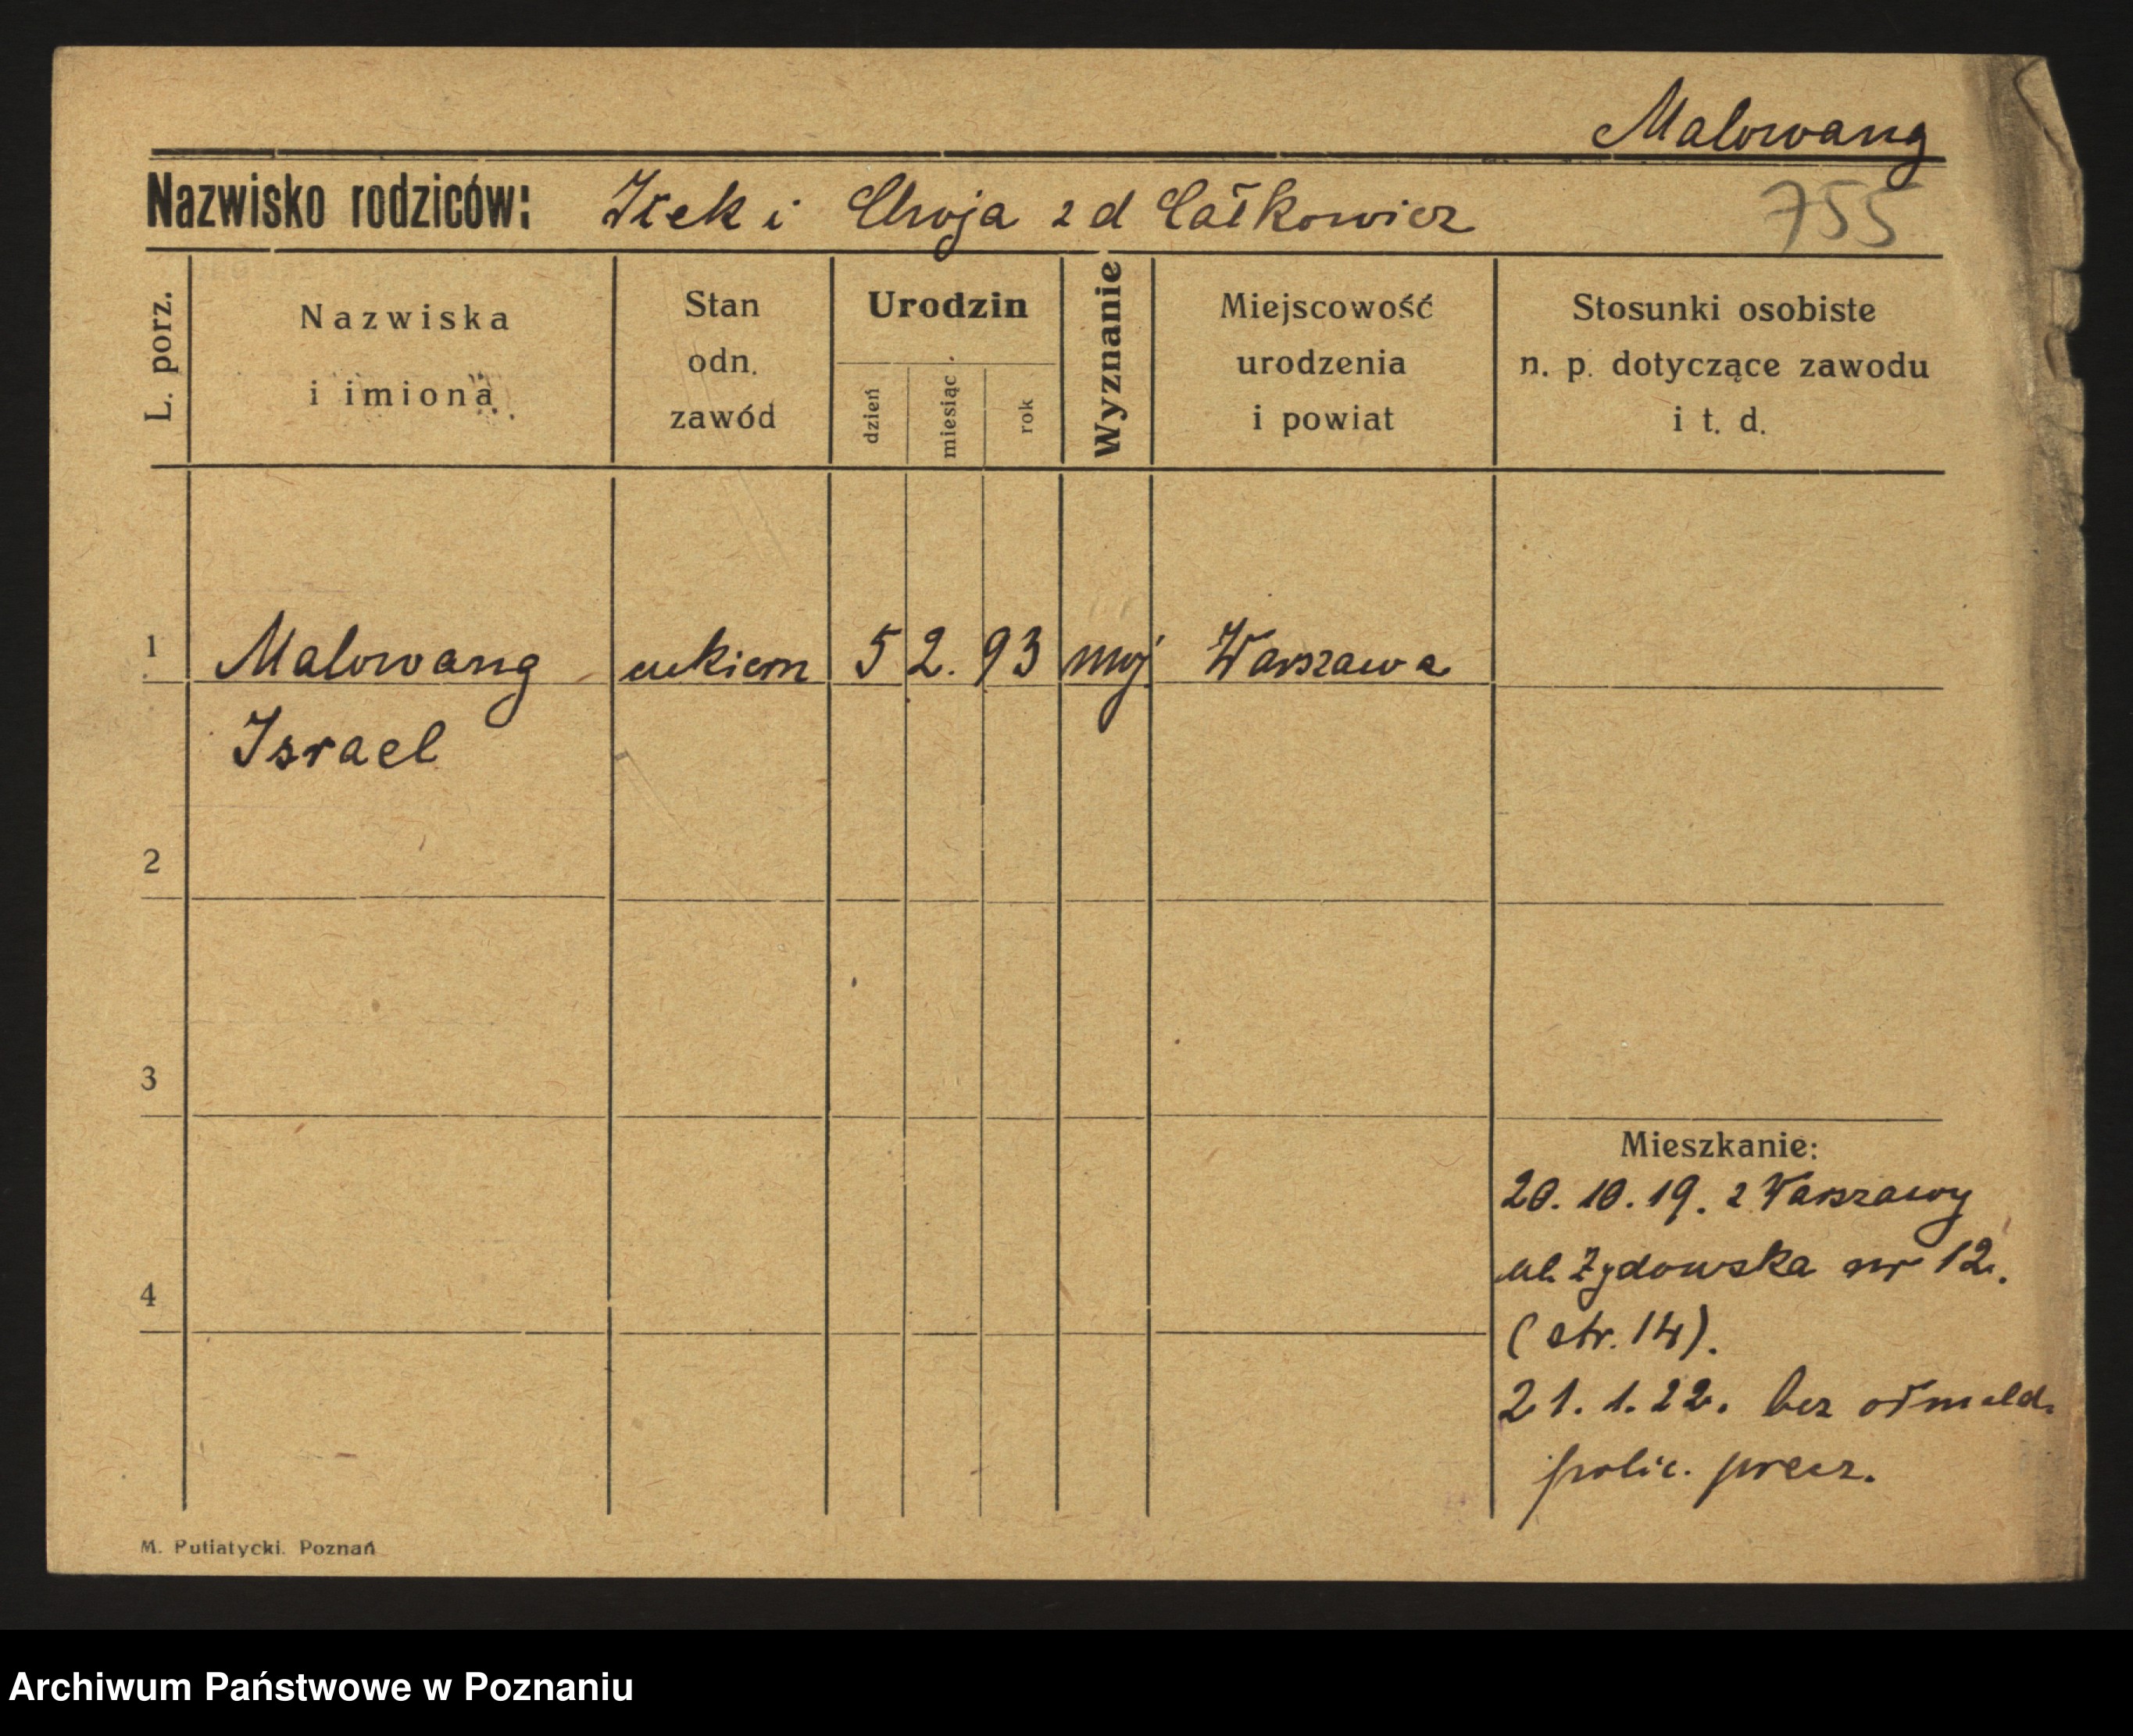 Malowang
Nazwisko rodziców: Icek i Chroja z d Całkowicz
755
L. porz.
Nazwiska
i imiona
Stan
odn.
zawód
Urodzin
dzień
miesiąc
rok
Wyznanie
Miejscowość
urodzenia
i powiat
Stosunki osobiste
n. p. dotyczące zawodu
i t. d.
1 Malowang cukiern 5 2. 93 moj Warszawa
Israel
2
3
4
Mieszkanie:
20. 10. 19. z Warszawy
ul. Żydowska nr 12.
(str. 14).
21. 1. 22. bez odmeld.
polic. precz.
M. Putiatycki. Poznań
Archiwum Państwowe w Poznaniu